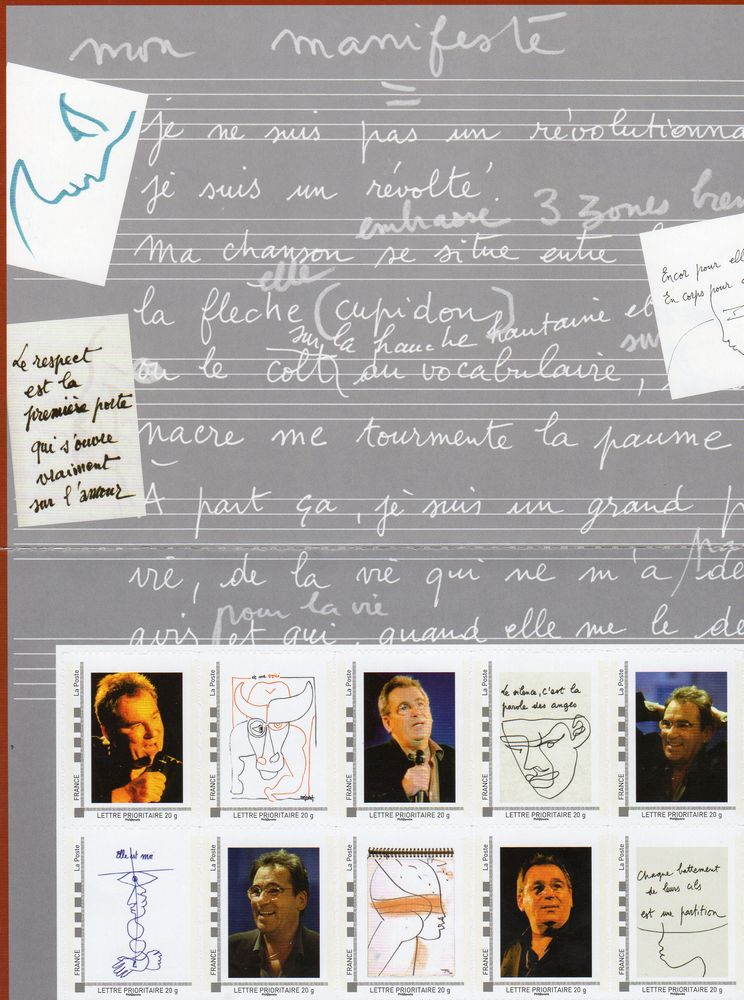 mon manifeste
=
je ne suis pas un révolutionna
je suis un révolté.
embrasse 3 zones
Ma chanson se situe entre
elle
la flèche (cupidon) hautaine et
sur la hanche
ou le colt du vocabulaire,
sur
nacre me tourmente la paume
À part ça, je suis un grand
vie, de la vie qui ne m'a
pour la vie
avis et qui, quand elle me le
Encor pour elle
En corps pour
Le respect
est la
première porte
qui s'ouvre
vraiment
sur l'amour
La Poste
FRANCE
LETTRE PRIORITAIRE 20 g
Phil@poste
La Poste
et me voici
FRANCE
LETTRE PRIORITAIRE 20 g
Phil@poste
La Poste
FRANCE
LETTRE PRIORITAIRE 20 g
Phil@poste
La Poste
Le silence, c'est la
parole des anges
FRANCE
LETTRE PRIORITAIRE 20 g
Phil@poste
La Poste
FRANCE
LETTRE PRIORITAIRE 20 g
Phil@poste
La Poste
elle et moi
FRANCE
LETTRE PRIORITAIRE 20 g
Phil@poste
La Poste
FRANCE
LETTRE PRIORITAIRE 20 g
Phil@poste
La Poste
FRANCE
LETTRE PRIORITAIRE 20 g
Phil@poste
La Poste
FRANCE
LETTRE PRIORITAIRE 20 g
Phil@poste
La Poste
Chaque battement
de leurs cils
est une partition
FRANCE
LETTRE PRIORITAIRE 20 g
Phil@poste